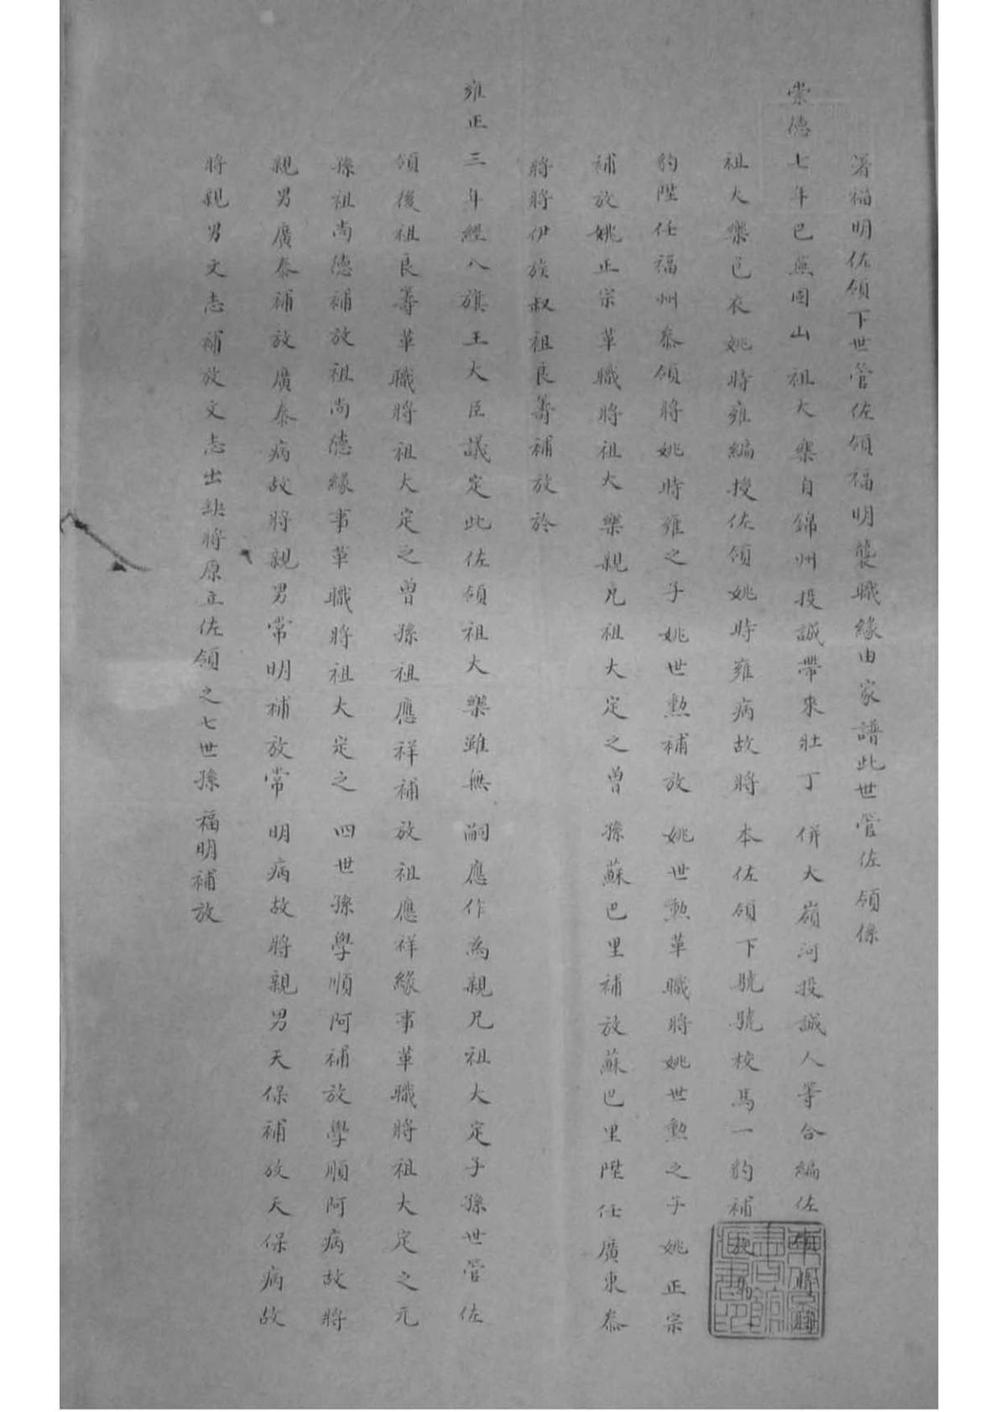 署福明佐領下世管佐領福明襲職緣由家譜此世管佐領係
崇德七年已無因山祖大樂自錦州投誠帶來壯丁併大嶺河投誠人等合編佐領將
祖大樂包衣姚時雍編授佐領姚時雍病故將本佐領下驍騎校馬一豹補放馬一
豹陞任福州叅領將姚時雍之子姚世勲補放姚世勲革職將姚世勲之子姚正宗
補放姚正宗革職將祖大樂親兄祖大定之曾孫蘇巴里補放蘇巴里陞任廣東叅
將將伊族叔祖良籌補放於
雍正三年經八旗王大臣議定此佐領祖大樂雖無嗣應作為親兄祖大定子孫世管佐
領後祖良籌革職將祖大定之曾孫祖應祥補放祖應祥緣事革職將祖大定之元
孫祖尚德補放祖尚德緣事革職將祖大定之四世孫學順阿補放學順阿病故將
親男廣泰補放廣泰病故將親男常明補放常明病故將親男天保補放天保病故
將親男文志補放文志出缺將原立佐領之七世孫福明補放